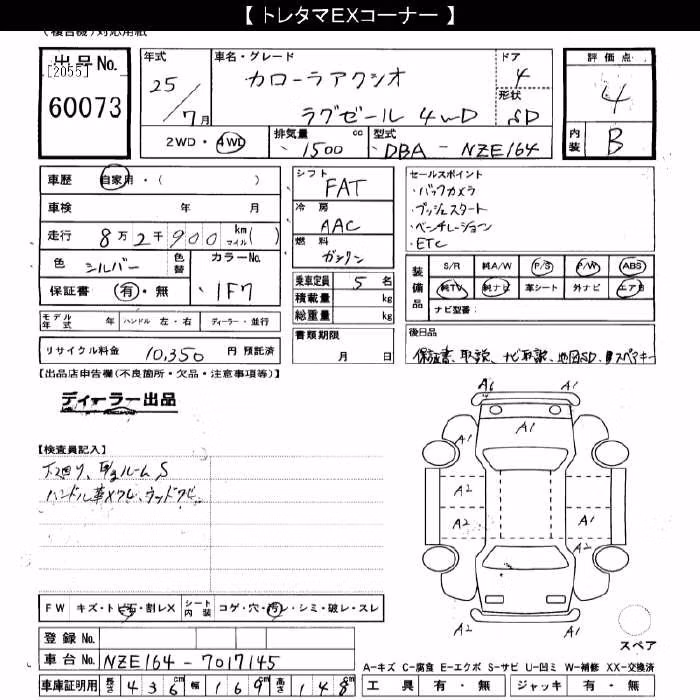 【 トレタマEXコーナー 】
(複合機)対応用紙
出品No.
[2055]
60073
年式
25／7月
車名・グレード
カローラアクシオ
ラグゼール 4WD
ドア
4
形状
SD
評価点
4
内装
B
2WD・4WD
排気量 cc
1500
型式
DBA - NZE164
車歴 自家用・( )
車検 年 月
走行 8万2千900 km マイル( )
色 シルバー 色替 カラーNo. 1F7
保証書 有・無
モデル年式 年 ハンドル 左・右 ディーラー・並行
リサイクル料金 10,350 円 預託済
シフト FAT
冷房 AAC
燃料 ガソリン
乗車定員 5名
積載量 kg
総重量 kg
書類期限
月 日
セールスポイント
・バックカメラ
・プッシュスタート
・ベンチレーション
・ETC
装備品
S/R 純A/W P/S P/W ABS
純TV 純ナビ 革シート 外ナビ エアB
ナビ型番:
後日品
保証書、取説、ナビ取説、地図SD、スペアキー
【出品店申告欄(不良箇所・欠品・注意事項等)】
ディーラー出品
【検査員記入】
下廻り、ルームS
ハンドル革
FW キズ・トビ石・割レX シート内装 コゲ・穴・汚レ・シミ・破レ・スレ
登録No.
車台No. NZE164-7017145
車庫証明用 長さ 436cm 幅 169cm 高さ 148cm
A1
A1
A1
A1
A2
A2
A1
A2
A1
スペア
A-キズ C-腐食 E-エクボ S-サビ U-凹ミ W-補修 XX-交換済
工具 有・無 ジャッキ 有・無